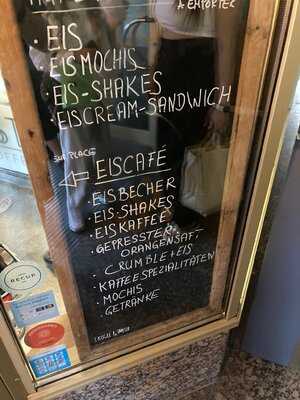 À EMPORTER
· EIS
· EISMOCHIS
· EIS-SHAKES
· EISCREAM-SANDWICH
SUR PLACE
EISCAFÉ
· EISBECHER
· EIS-SHAKES
· EISKAFFEE
· GEPRESSTER
ORANGENSAFT
· CRUMBLE + EIS
· KAFFEESPEZIALITÄTEN
· MOCHIS
· GETRÄNKE
RECUP